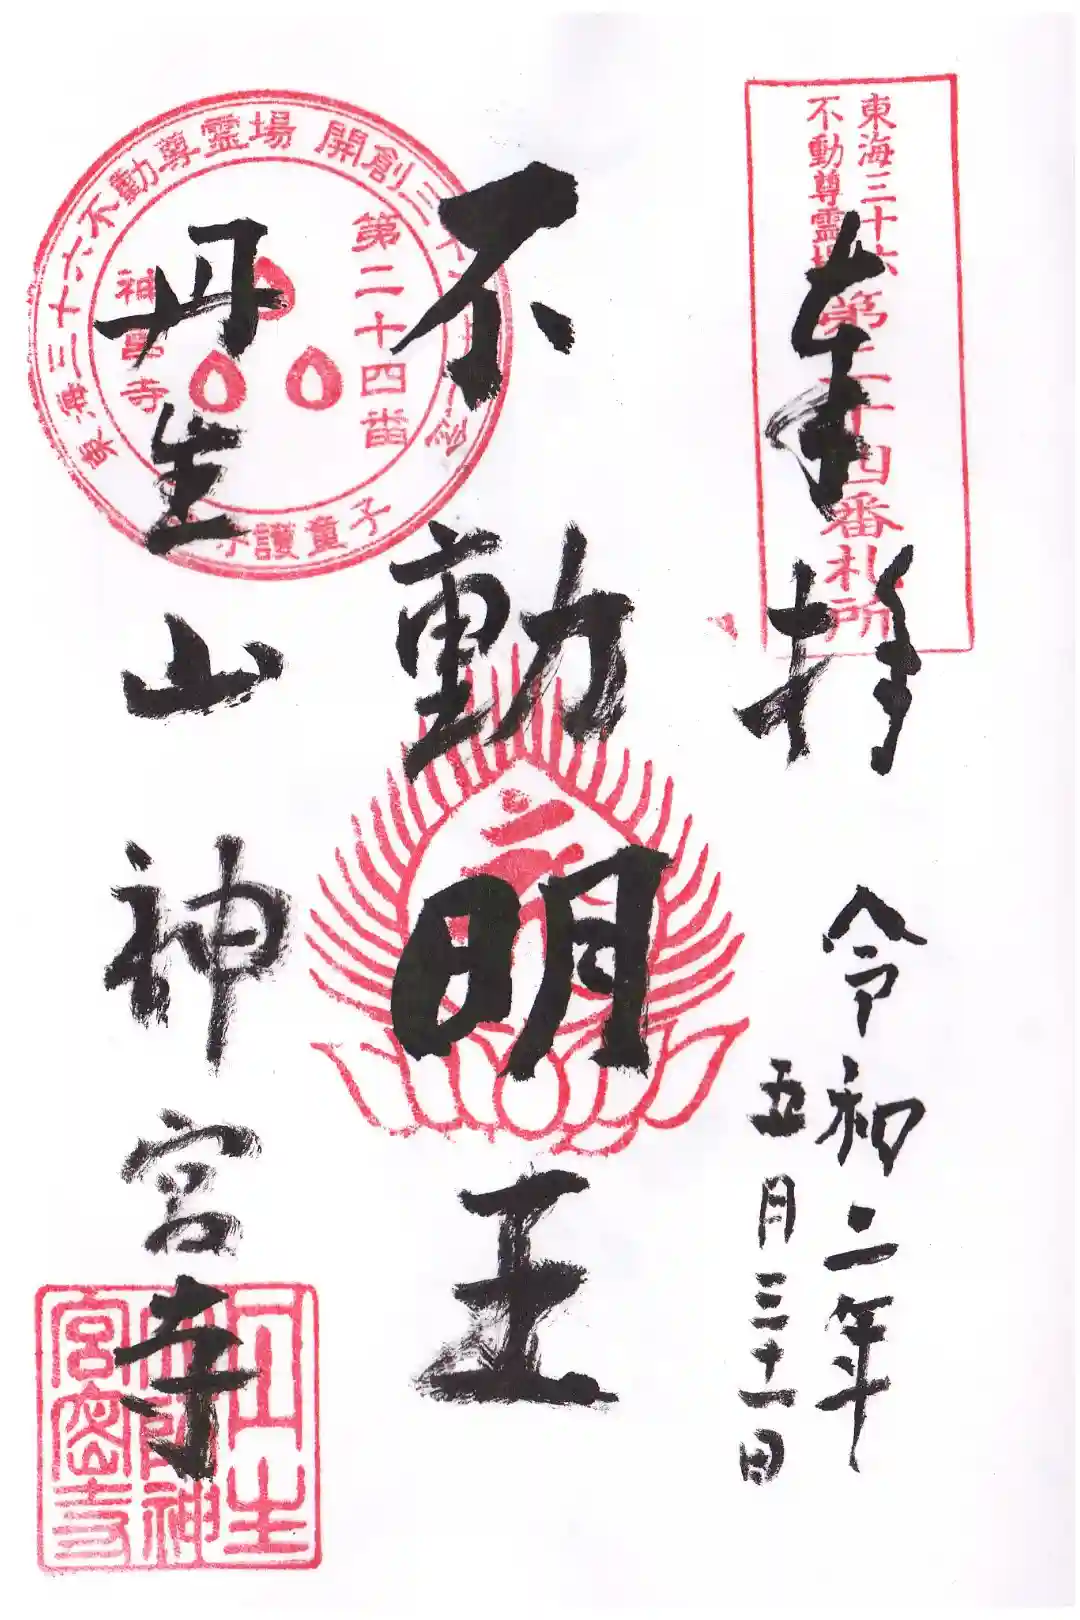 奉拝
令和二年
五月三十一日
不動明王
丹生山神宮寺
東海三十六
不動尊霊場
第二十四番札所
東海三十六不動尊霊場 開創三十
護童子
第二十四番
神宮寺
丹生山
神
宮密寺